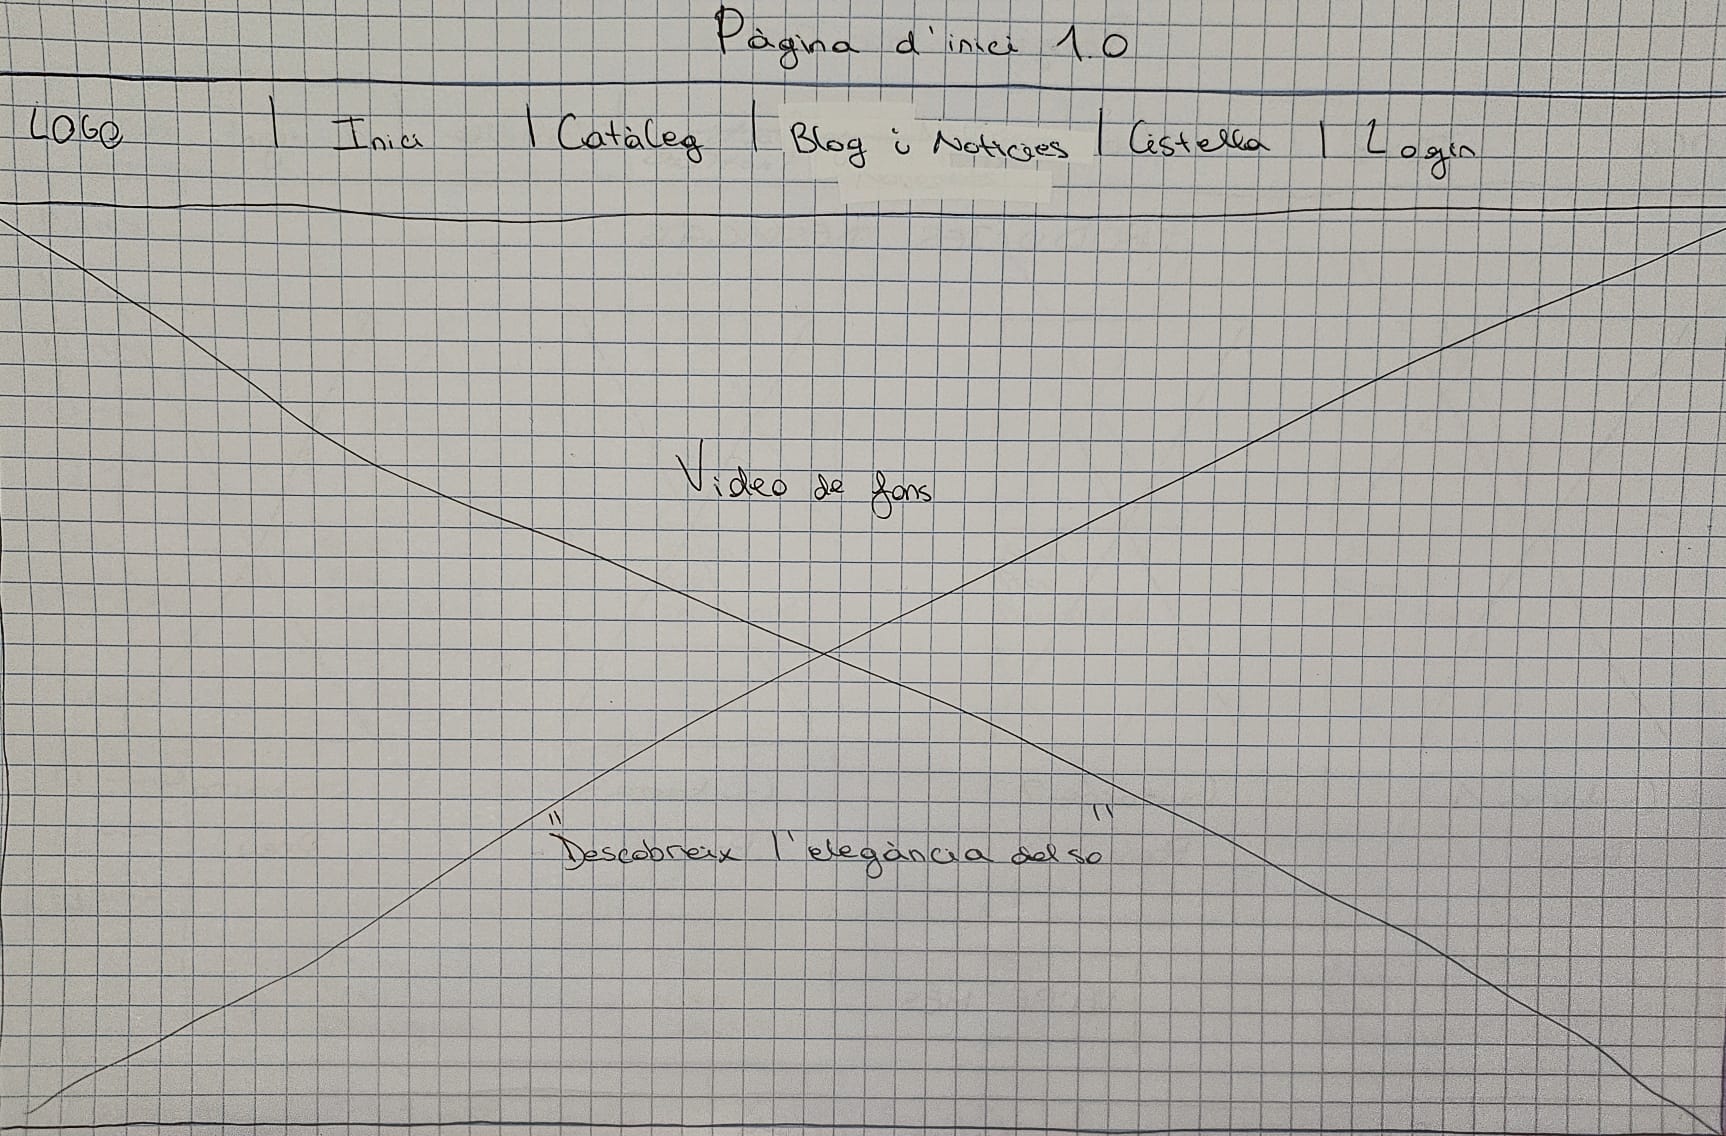 Pàgina d'inici 1.0
LOGO | Inici | Catàleg | Blog i Notícies | Cistella | Login
Video de fons
"Descobreix l'elegància del so"